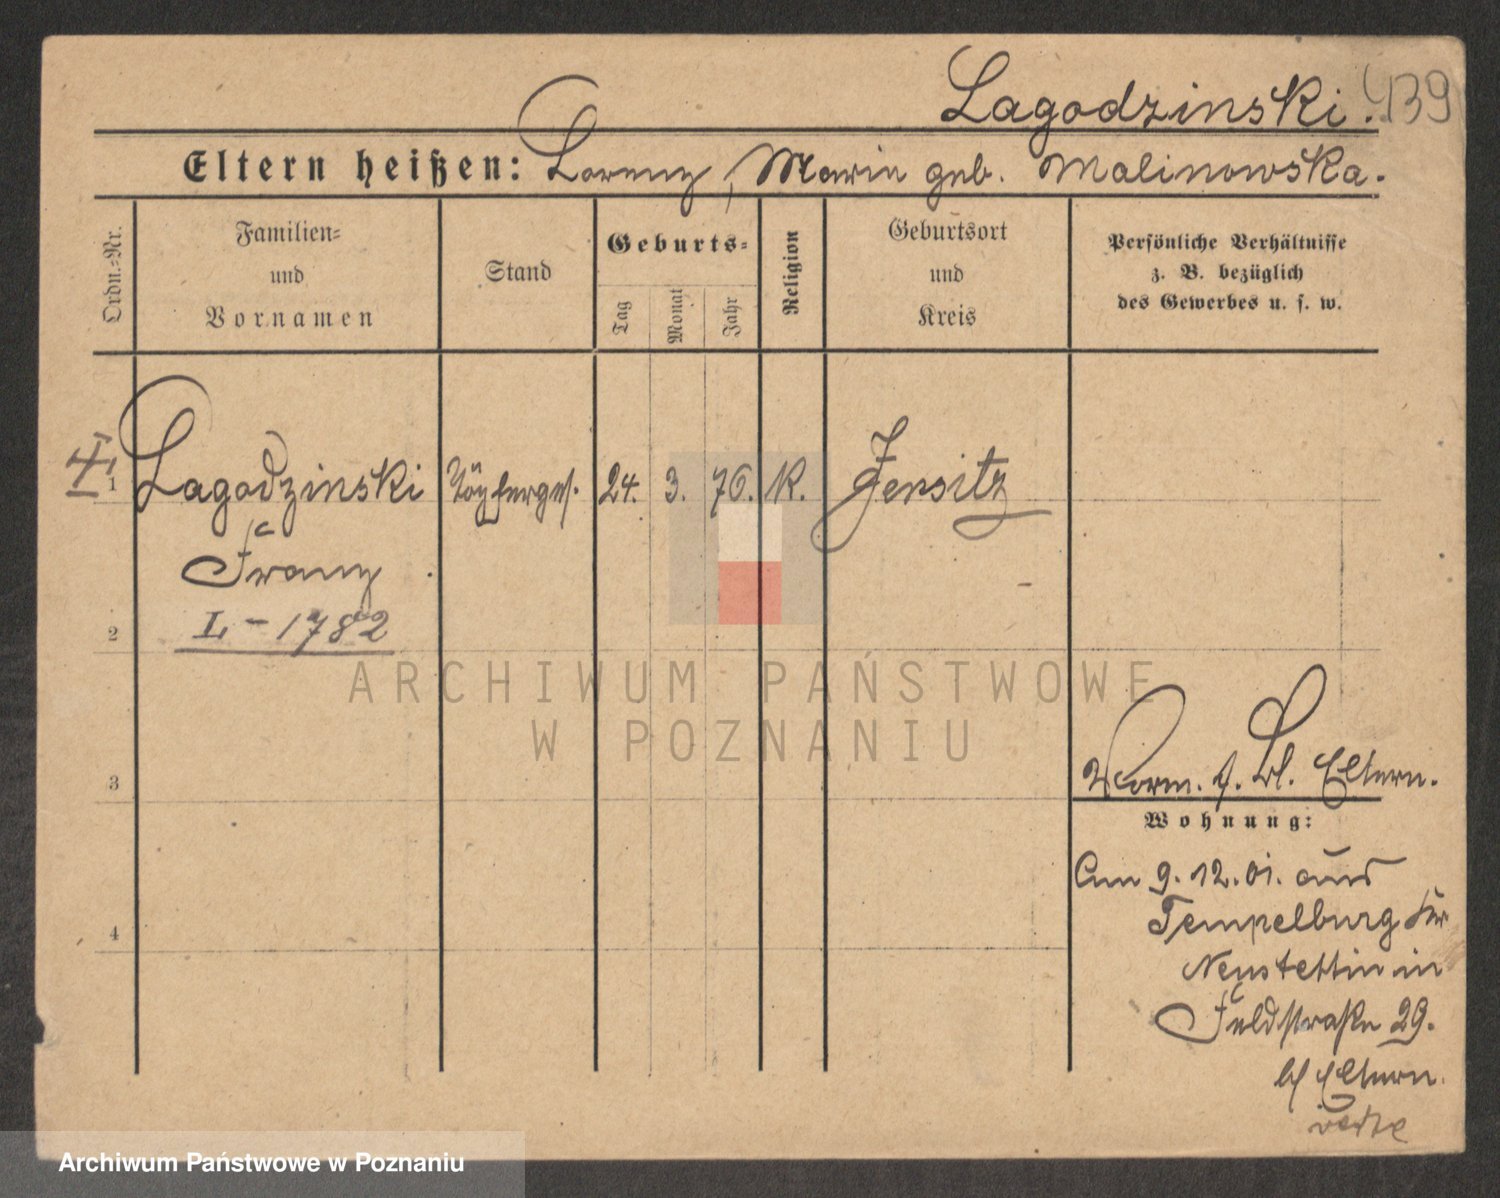 Lagodzinski. 139
Eltern heißen: Lorenz, Marie geb. Malinowska.
Ordn.=Nr.
Familien=
und
Vornamen
Stand
Geburts=
Tag
Monat
Jahr
Religion
Geburtsort
und
Kreis
Persönliche Verhältnisse
z. B. bezüglich
des Gewerbes u. s. w.
1 Lagodzinski Töpferges. 24. 3. 76. K. Jersitz
Franz
L-1782
2
ARCHIWUM PAŃSTWOWE
W POZNANIU
3
Vorm. f. bl. Eltern.
Wohnung:
Am 9.12.01. aus
Tempelburg Kr
Neustettin in
Feldstraße 29.
bl Eltern.
4
Archiwum Państwowe w Poznaniu